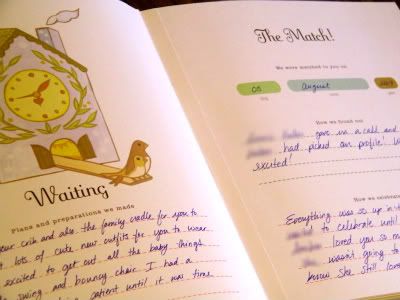 Waiting
Plans and preparations we made
your crib and also the family cradle for you to
lots of cute new outfits for you to wear.
excited to get out all the baby things
swing and bouncy chair. I had a
patient until it was time
The Match!
We were matched to you on
05 August
day
How we found out
gave us a call and
had picked our profile!
excited!
How we
Everything was so up in
to celebrate until
loved you so m
wasn't going to
know she still loved